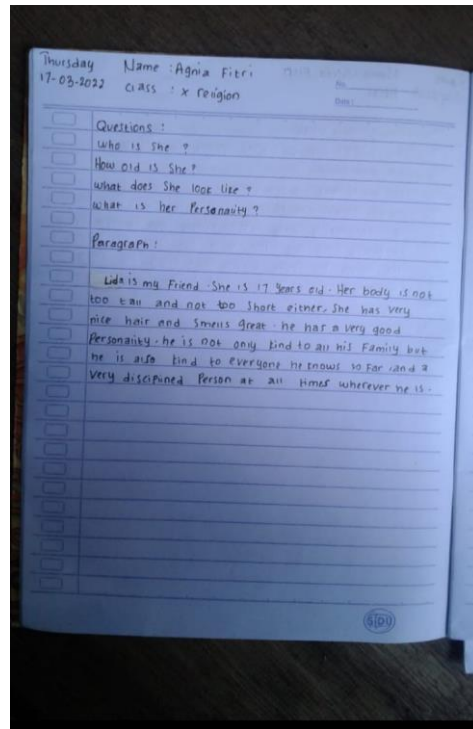 Thursday Name : Agnia Fitri
17-03-2022 Class : x religion
No.
Date :
Questions :
who is She ?
How old is She ?
what does She look like ?
what is her Personality ?
Paragraph :
Lida is my Friend . She is 17 years old . Her body is not
too tall and not too Short either, She has very
nice hair and Smells great . he has a very good
Personality . he is not only kind to all his Family but
he is also kind to everyone he knows so Far , and a
very disciplined Person at all times wherever he is .
SIDU